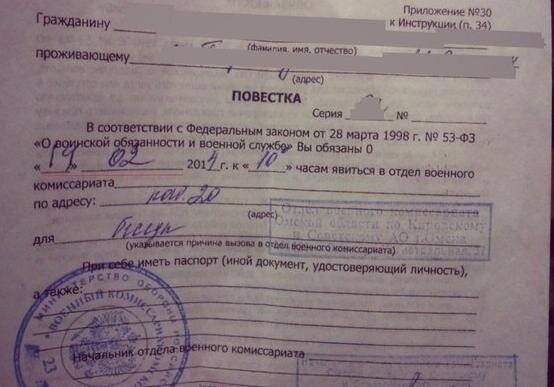 Приложение №30
к Инструкции (п. 34)
Гражданину
(фамилия, имя, отчество)
проживающему
(адрес)
ПОВЕСТКА
Серия №
В соответствии с Федеральным законом от 28 марта 1998 г. № 53-ФЗ
«О воинской обязанности и военной службе» Вы обязаны 0
« 14 » 02 2014 г. к « 10 » часам явиться в отдел военного
комиссариата
по адресу: каб. 20
(адрес)
Отдел военного комиссариата
Омской области по Кировскому
и Советскому АО г.Омска
для
(указывается причина вызова в отдел военного комиссариата)
При себе иметь паспорт (иной документ, удостоверяющий личность),
а также:
МИНИСТЕРСТВО ОБОРОНЫ
ВОЕННЫЙ КОМИССАРИАТ
23
Начальник отдела военного комиссариата